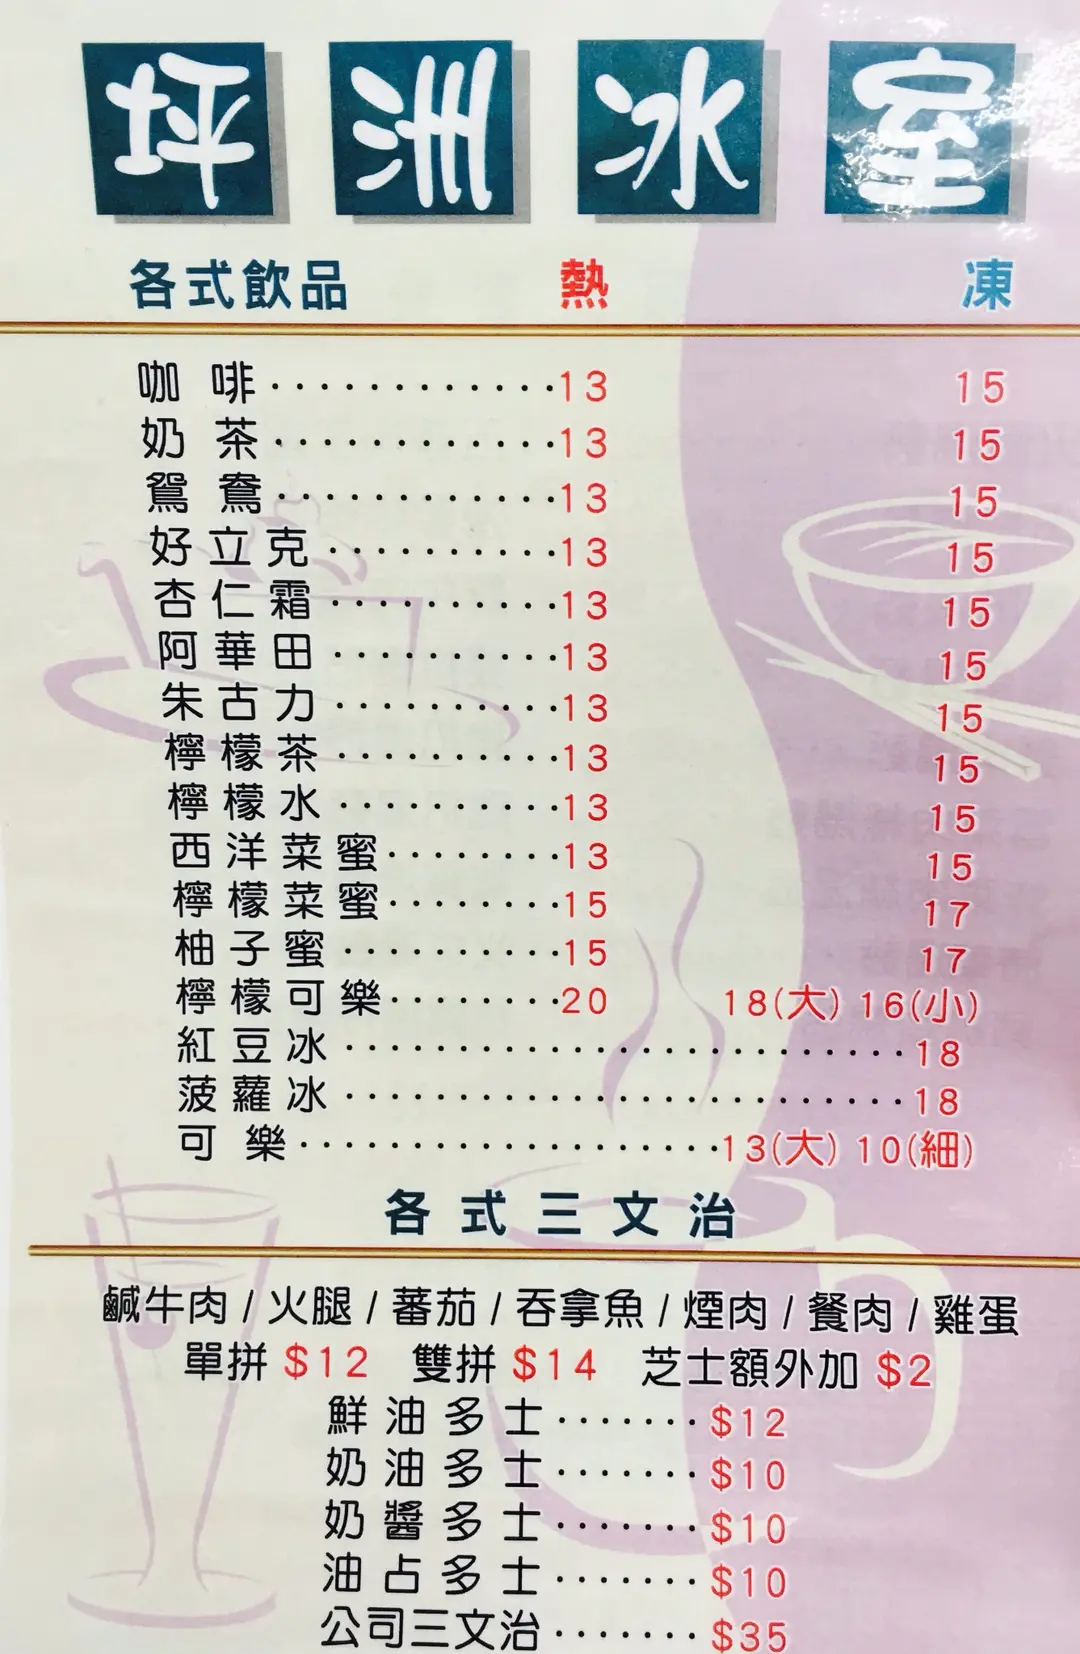 坪洲冰室
各式飲品 熱 凍
咖啡············13 15
奶茶············13 15
鴛鴦············13 15
好立克··········13 15
杏仁霜··········13 15
阿華田··········13 15
朱古力··········13 15
檸檬茶··········13 15
檸檬水··········13 15
西洋菜蜜········13 15
檸檬菜蜜········15 17
柚子蜜··········15 17
檸檬可樂········20 18(大) 16(小)
紅豆冰························18
菠蘿冰························18
可樂··················13(大) 10(細)
各式三文治
鹹牛肉/火腿/蕃茄/吞拿魚/煙肉/餐肉/雞蛋
單拼 $12 雙拼 $14 芝士額外加 $2
鮮油多士·······$12
奶油多士·······$10
奶醬多士·······$10
油占多士·······$10
公司三文治·······$35